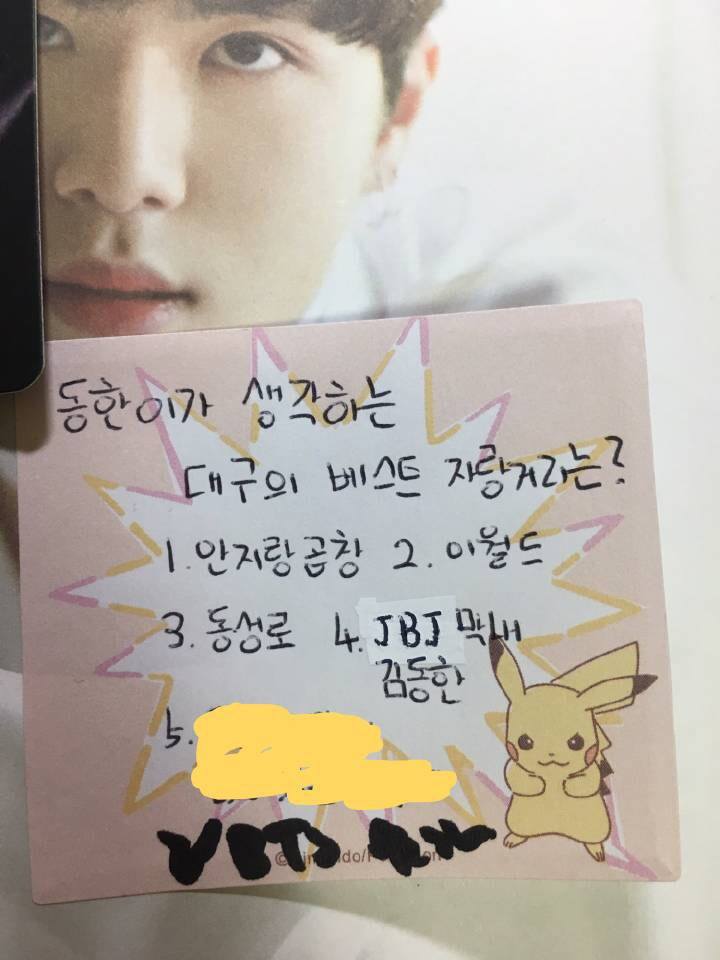 동한이가 생각하는
대구의 베스트 자랑거리는?
1. 안지랑곱창 2. 이월드
3. 동성로 4. JBJ 막내
김동한
5.